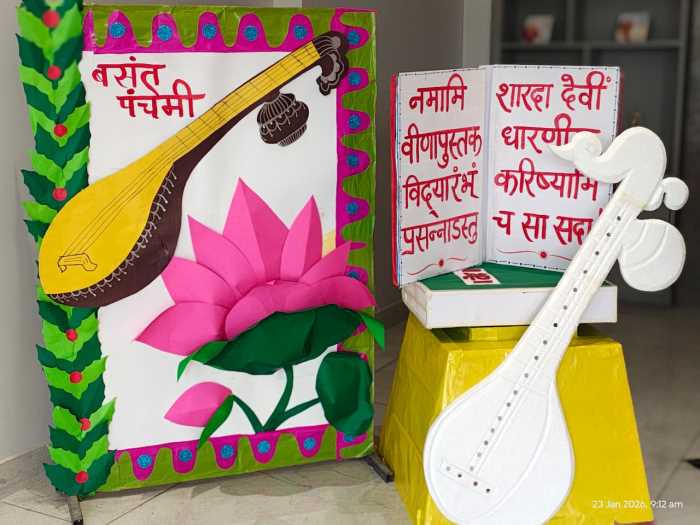 बसंत
पंचमी
नमामि शारदा देवीं
वीणापुस्तक
विद्‌यारंभं करिष्यामि
प्रसन्नाडस्तु च सा सदा
23 Jan 2026, 9:12 am